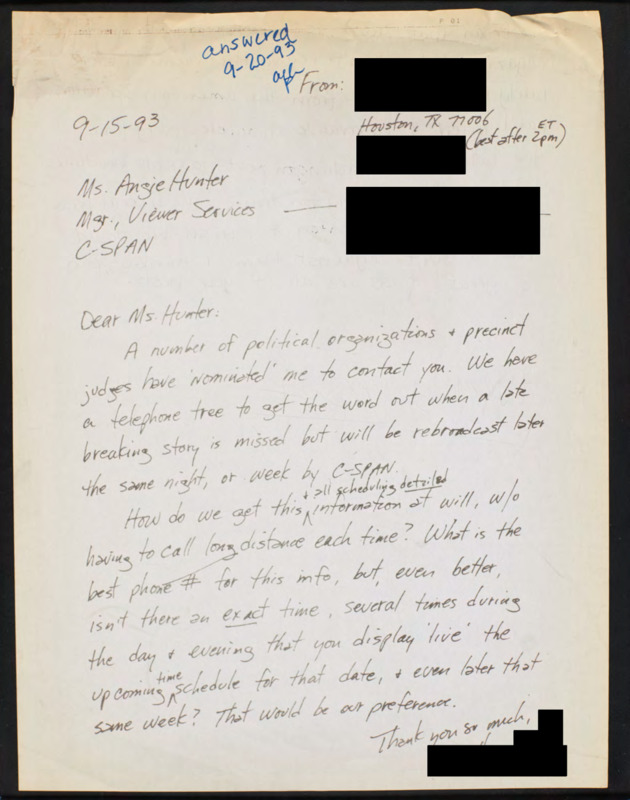 answered
9-20-93
From:
9-15-93
Houston, TX 77006
(best after 2pm) ET
Ms. Angie Hunter
Mgr., Viewer Services
C-SPAN
Dear Ms. Hunter:
A number of political organizations + precinct
judges have 'nominated' me to contact you. We have
a telephone tree to get the word out when a late
breaking story is missed but will be rebroadcast later
the same night, or week by C-SPAN.
+ all scheduling detailed
How do we get this information at will, w/o
having to call long distance each time? What is the
best phone # for this info, but, even better,
isn't there an exact time, several times during
the day + evening that you display 'live' the
upcoming time schedule for that date, + even later that
same week? That would be our preference.
Thank you so much,